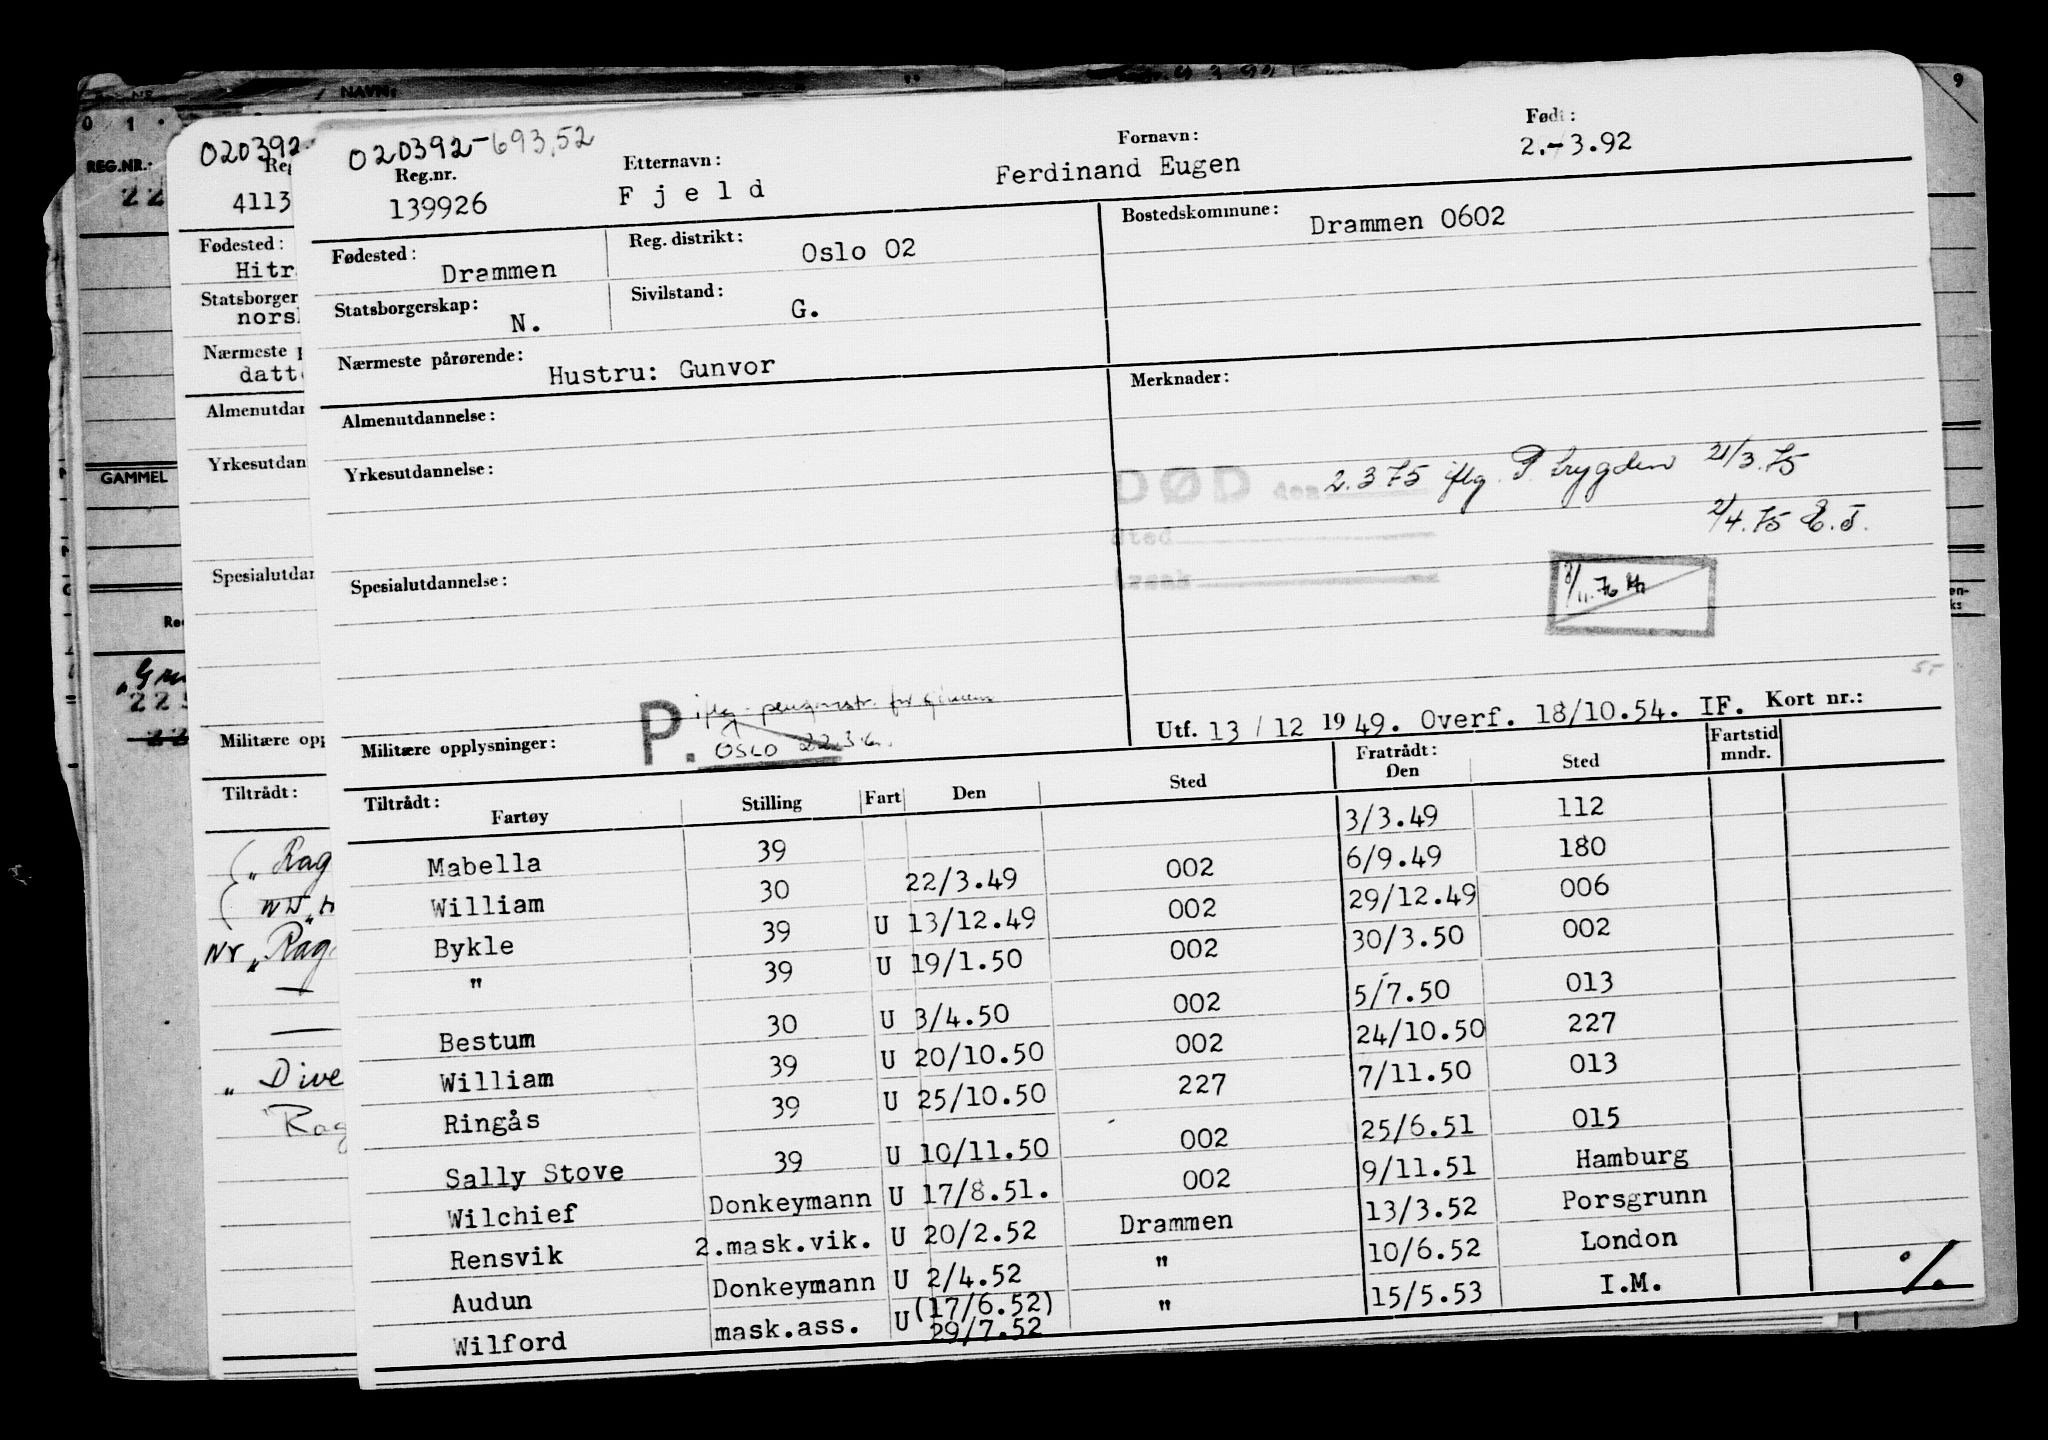 NAVN:
9
0 1
REG.NR.:
22
GAMMEL
020392-
4113
Fødested:
Hitr
Statsborger
nors
Nærmeste
datt
Almenutdan
Yrkesutdan
Spesialutdan
Militære opp
Tiltrådt:
„Rag
Nr „Rag
„Dive
Rag
020392-693,52
Reg.nr.
139926
Etternavn:
Fjeld
Fornavn:
Ferdinand Eugen
Født:
2.-3.92
Fødested:
Drammen
Reg. distrikt:
Oslo 02
Bostedskommune:
Drammen 0602
Statsborgerskap:
N.
Sivilstand:
G.
Nærmeste pårørende:
Hustru: Gunvor
Merknader:
Almenutdannelse:
Yrkesutdannelse:
DØD den 2.3 75 iflg. P. trygden 21/3.75
Sted
2/4.75 E.T.
Spesialutdannelse:
P. iflg. pensjonstr. for
OSLO
Militære opplysninger:
Utf. 13/12 1949. Overf. 18/10.54. IF. Kort nr.:
Tiltrådt: Fartøy Stilling Fart Den Sted Fratrådt: Den Sted Fartstid mndr.
Mabella 39 3/3.49 112
William 30 22/3.49 002 6/9.49 180
Bykle 39 U 13/12.49 002 29/12.49 006
" 39 U 19/1.50 002 30/3.50 002
Bestum 30 U 3/4.50 002 5/7.50 013
William 39 U 20/10.50 002 24/10.50 227
Ringås 39 U 25/10.50 227 7/11.50 013
Sally Stove 39 U 10/11.50 002 25/6.51 015
Wilchief Donkeymann U 17/8.51. 002 9/11.51 Hamburg
Rensvik 2.mask.vik. U 20/2.52 Drammen 13/3.52 Porsgrunn
Audun Donkeymann U 2/4.52 " 10/6.52 London
Wilford mask.ass. U (17/6.52) 29/7.52 " 15/5.53 I.M.
%